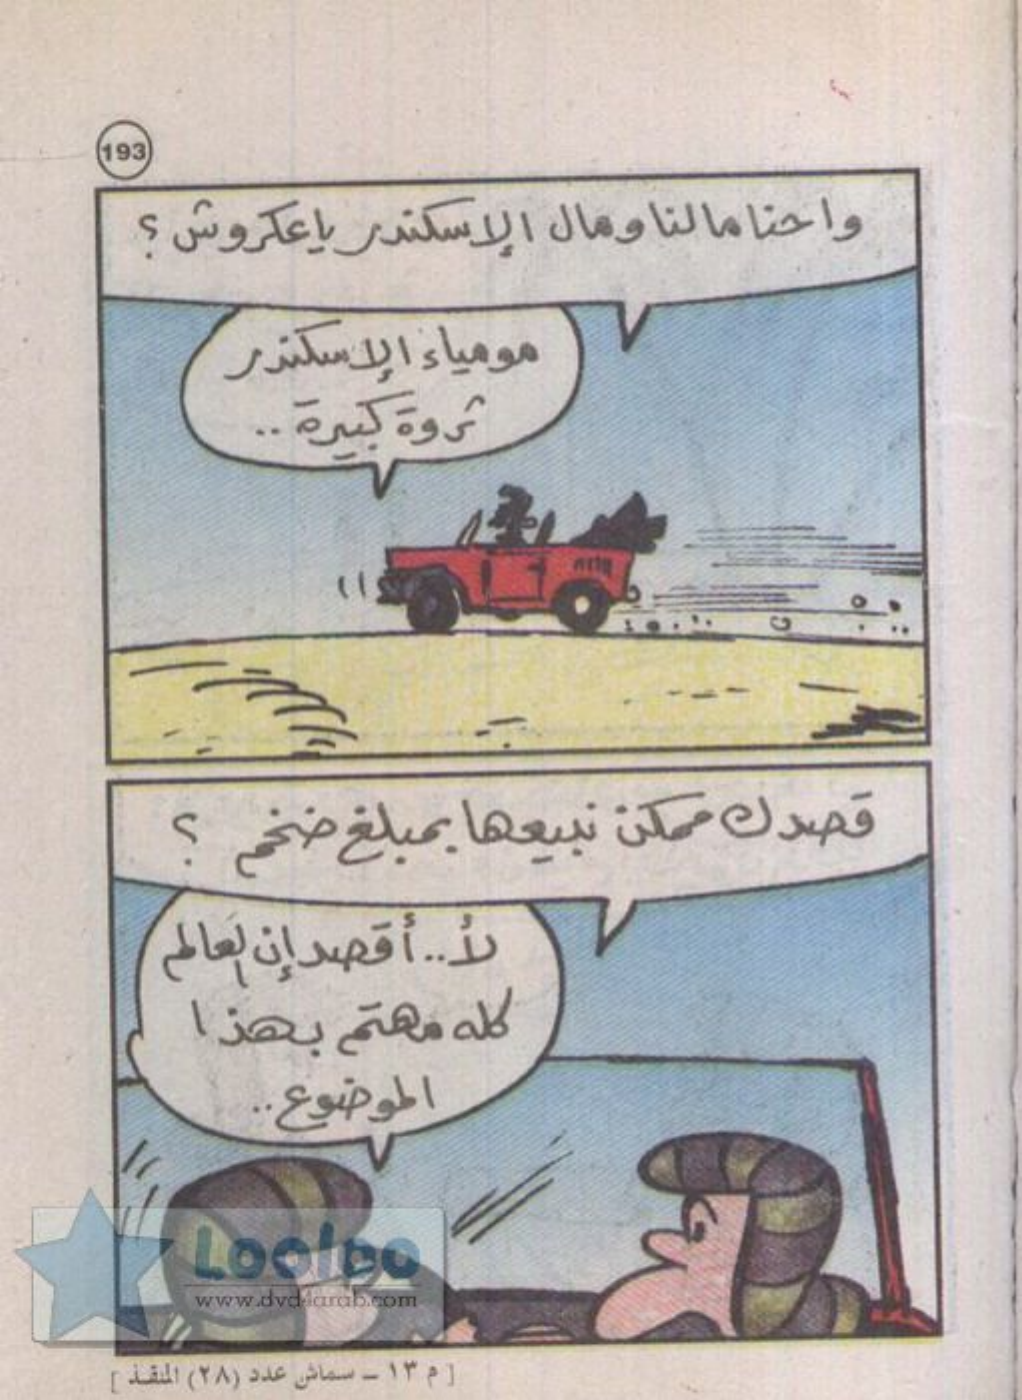 193
واحنا مالنا ومال الإسكندر يا عكروش ؟
مومياء الإسكندر
ثروة كبيرة ..
قصدك ممكن نبيعها بمبلغ ضخم ؟
لأ .. أقصد إن العالم
كله مهتم بهذا
الموضوع ..
Looloo
www.dvd4arab.com
[ م ١٣ ــ سماش عدد (٢٨) المنقذ ]